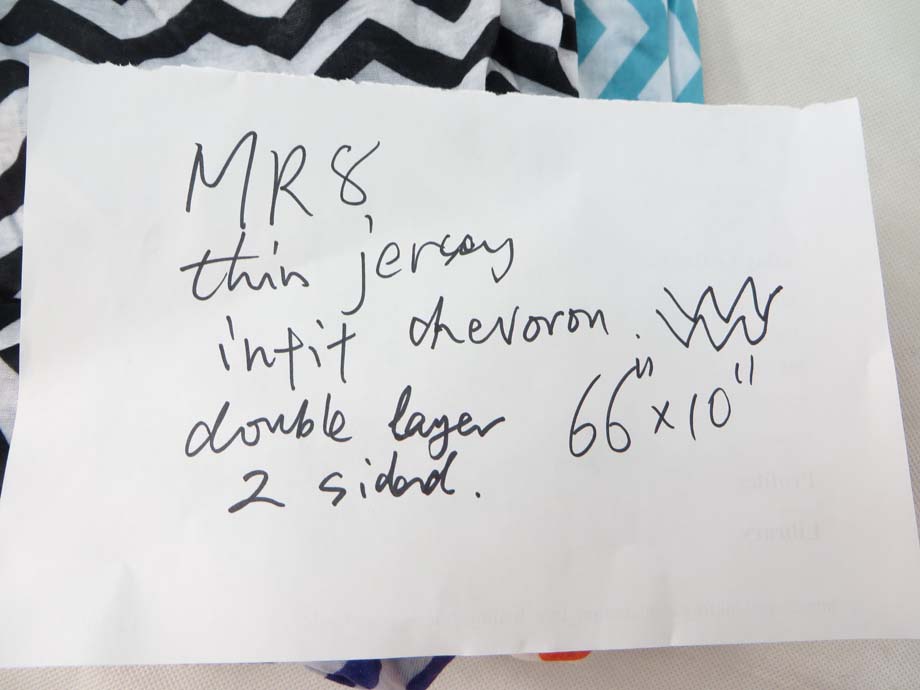 MR8,
thin jersey
infit chevoron.
66" x 10"
double layer
2 sided.